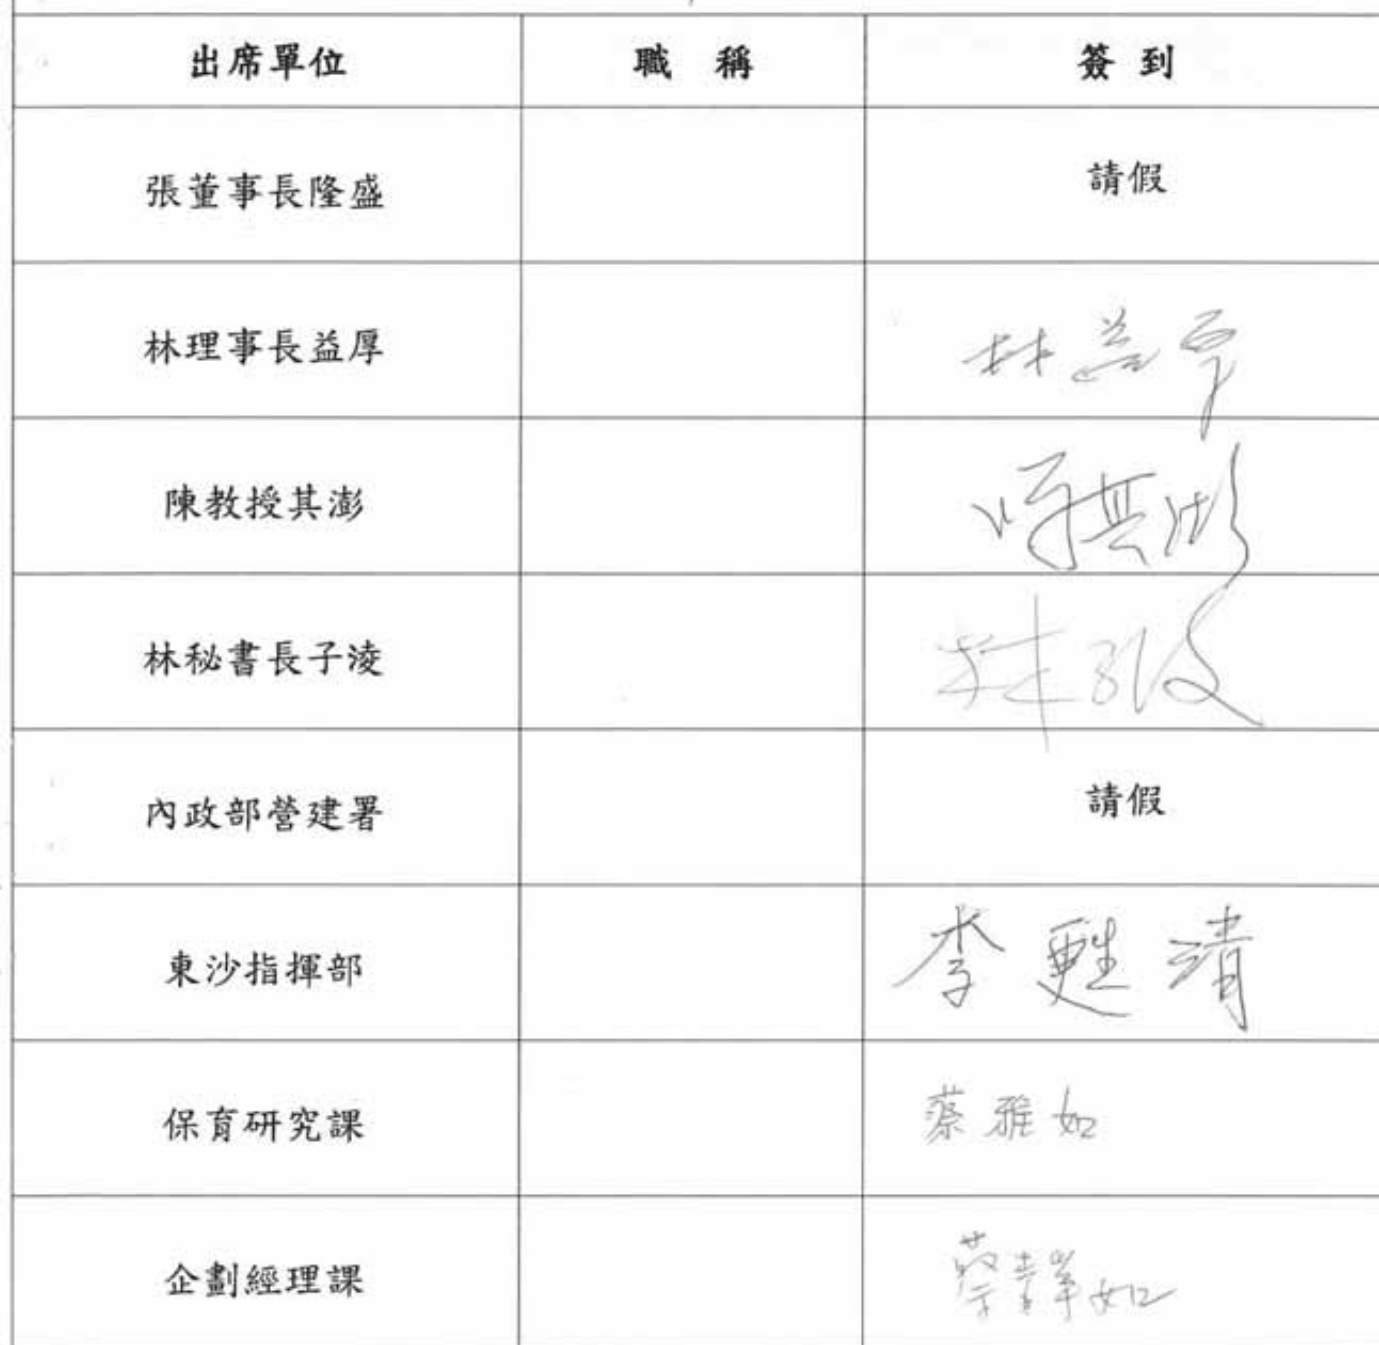 出席單位 職 稱 簽 到
張董事長隆盛 請假
林理事長益厚 林益厚
陳教授其澎 陳其澎
林秘書長子淩 林子淩
內政部營建署 請假
東沙指揮部 李甦清
保育研究課 蔡雅如
企劃經理課 蔡